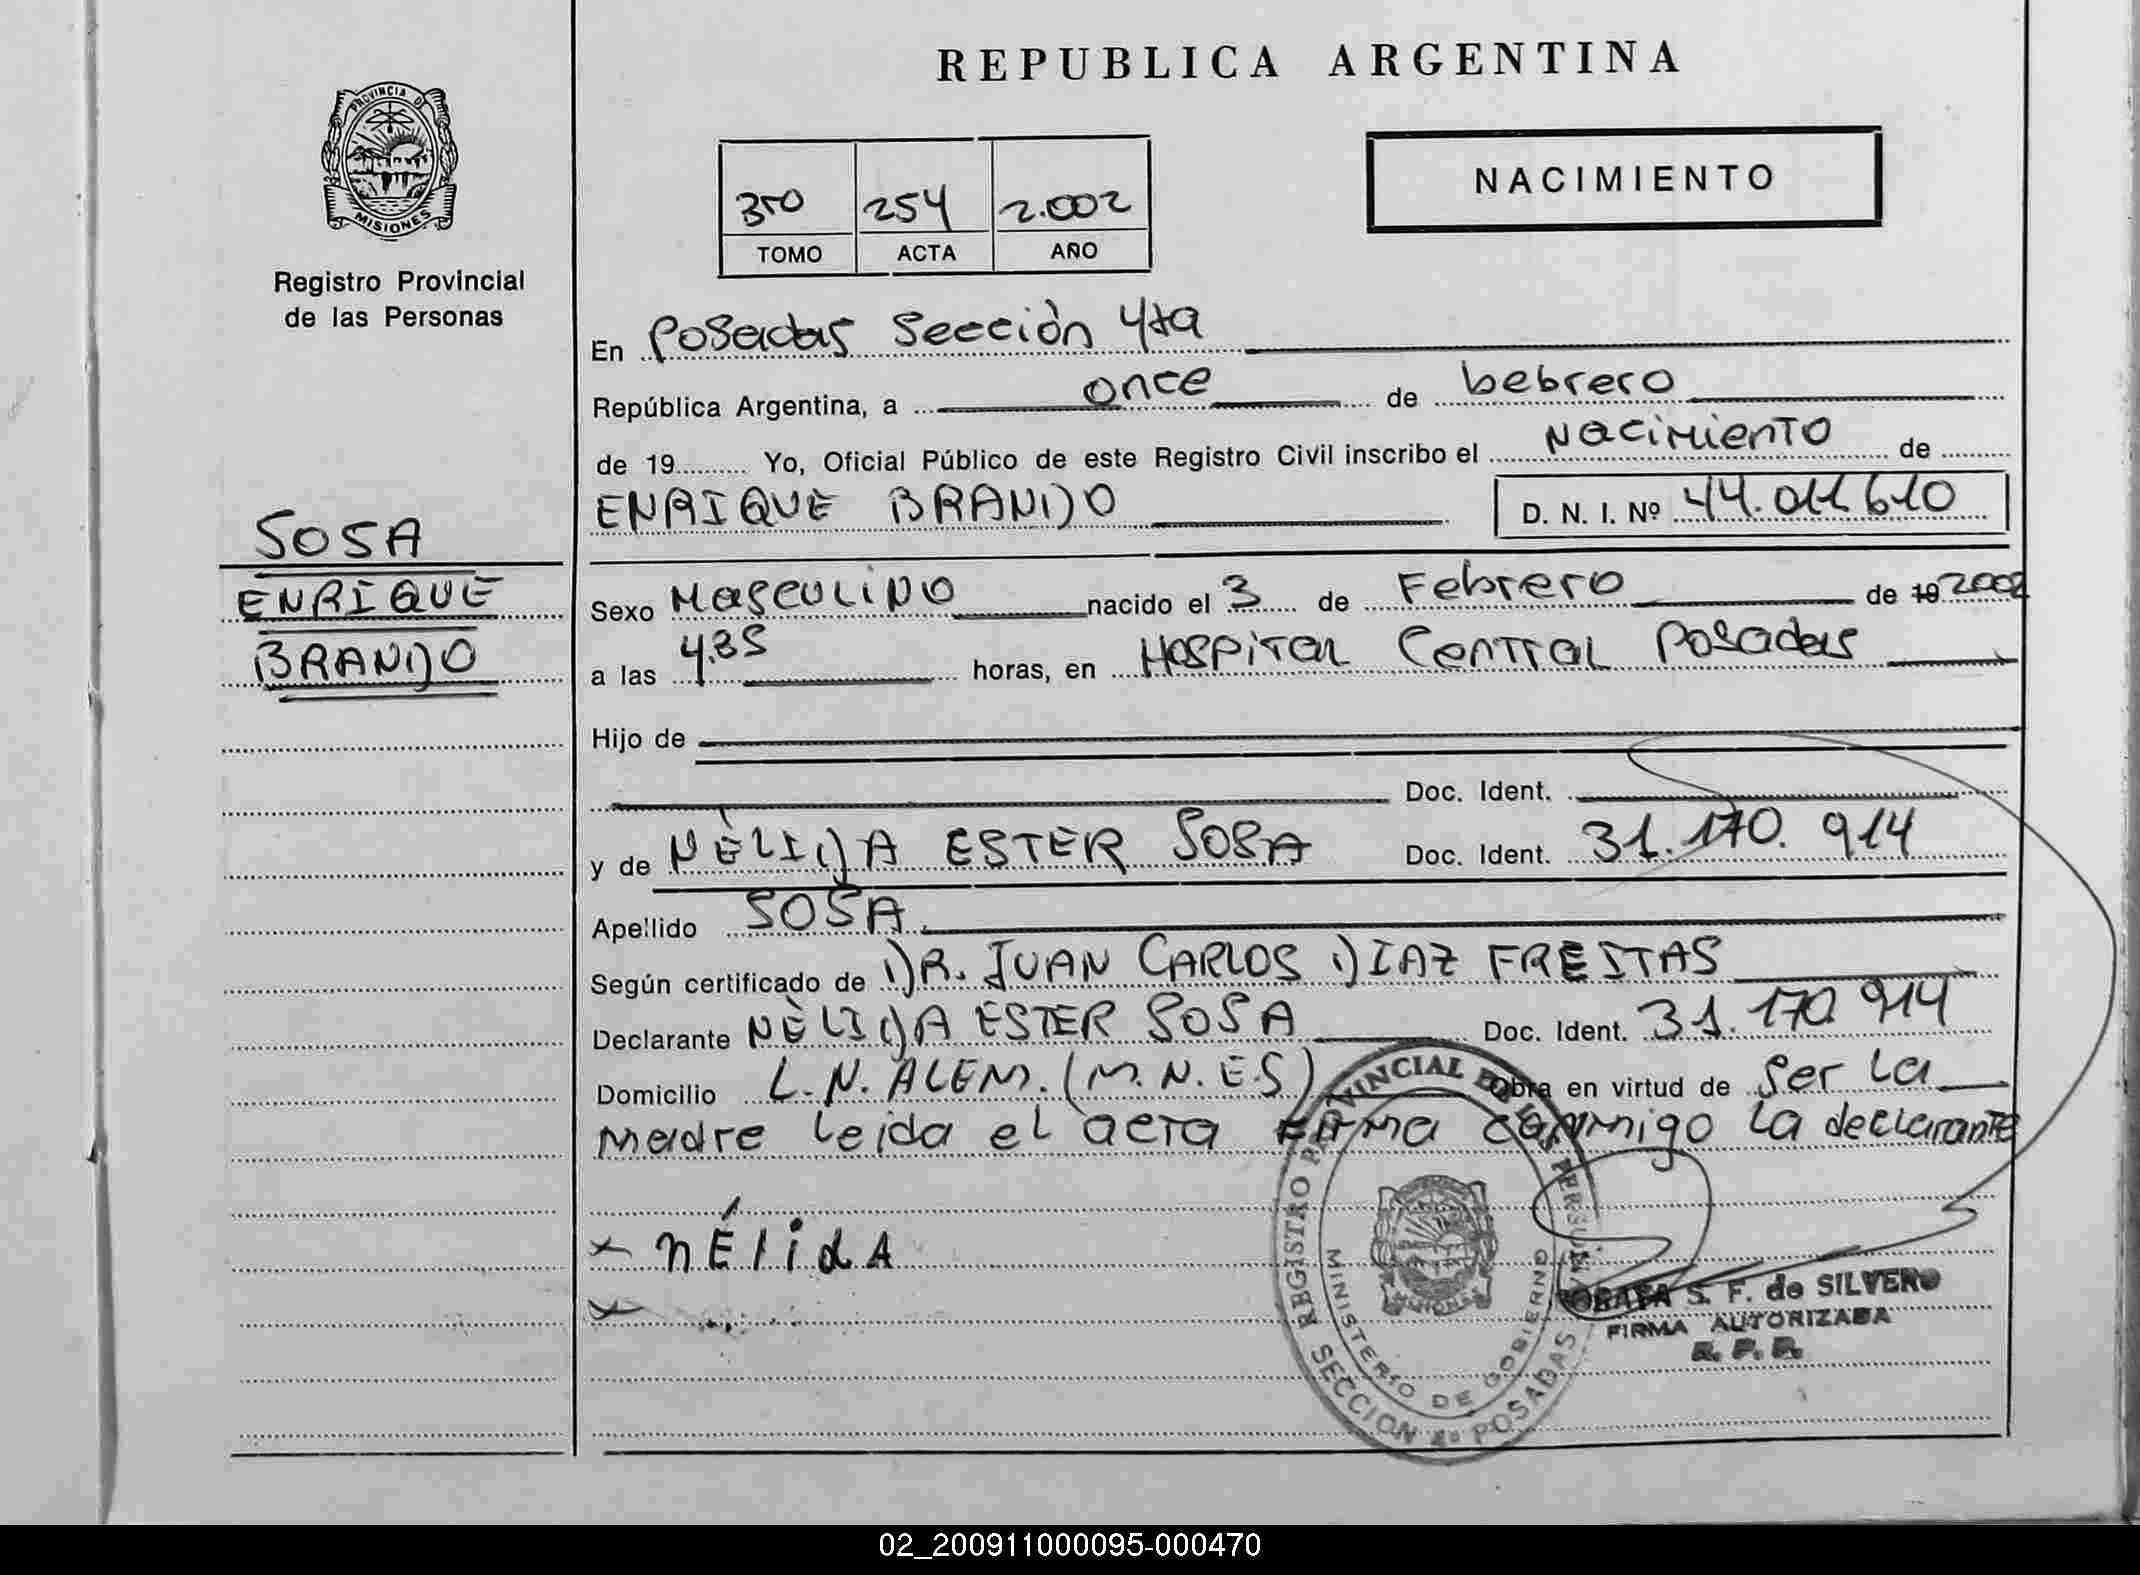 REPUBLICA ARGENTINA
PROVINCIA DE
MISIONES
Registro Provincial
de las Personas
NACIMIENTO
350 254 2.002
TOMO ACTA AÑO
En Posadas Sección 4ta
República Argentina, a once de febrero
de 19 Yo, Oficial Público de este Registro Civil inscribo el Nacimiento de
ENRIQUE BRANDO D. N. I. Nº 44.011610
SOSA
ENRIQUE
BRANDO
Sexo Masculino nacido el 3 de Febrero de 19 2002
a las 4.35 horas, en Hospital Central Posadas
Hijo de
Doc. Ident.
y de NÈLIDA ESTER SOSA Doc. Ident. 31.170.914
Apellido SOSA
Según certificado de DR. JUAN CARLOS DIAZ FREITAS
Declarante NÈLIDA ESTER SOSA Doc. Ident. 31.170.914
Domicilio L.N. ALEM. (M.N.E.S) Obra en virtud de ser la
madre leida el acta firma conmigo la declarante
x nÉlidA
x
REGISTRO PROVINCIAL DE LAS PERSONAS
MINISTERIO DE GOBIERNO
SECCION 4º POSADAS
S. F. de SILVERO
FIRMA AUTORIZADA
R. P. P.
02_200911000095-000470